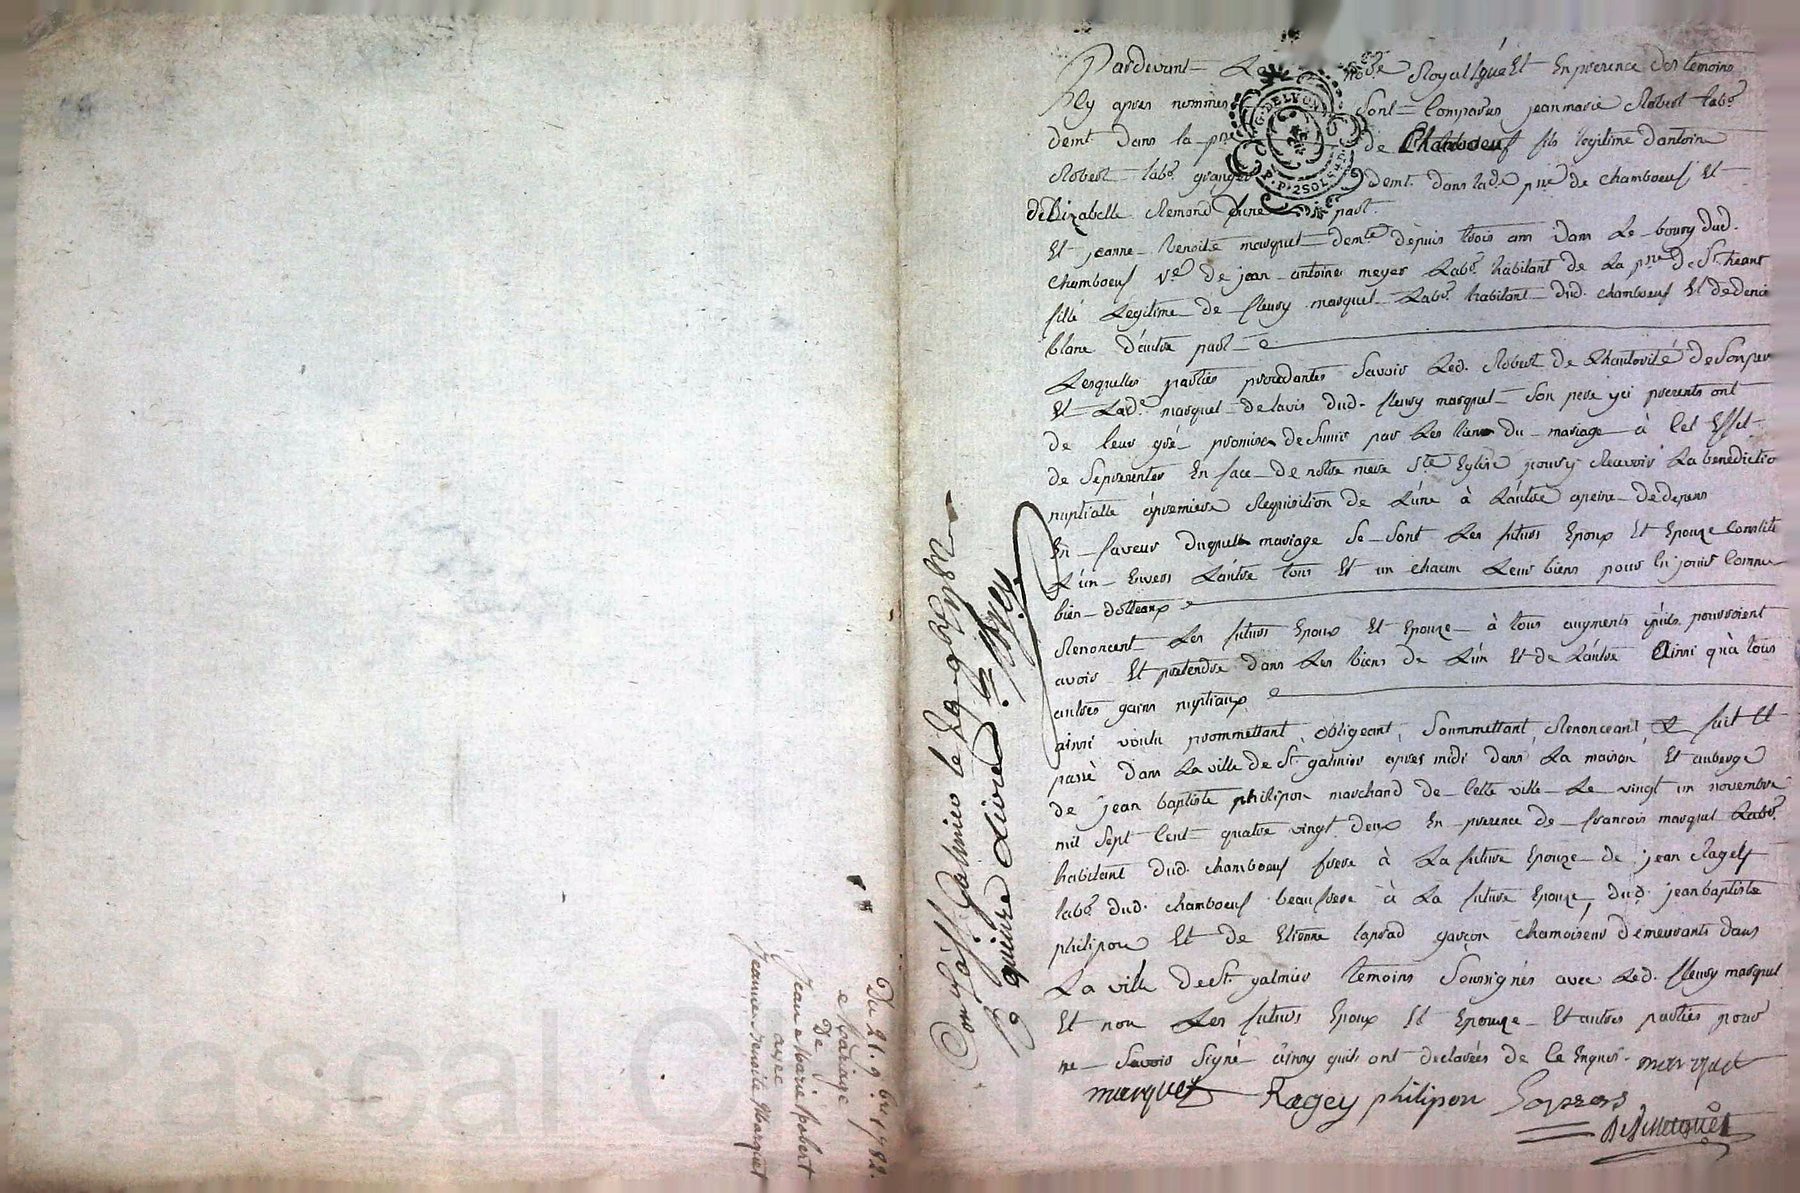 Pardevant Le nore Royal Et En presence des temoins
Cy apres nommes Sont Comparus jean marie Robert labr
demt dans la prse de Chamboeuf fils legitime dantoine
Robert labr granger demt dans lade prse de chamboeuf Et
de Lizabelle Remond dune part
Et jeanne Benoite marquet demte depuis trois ans dans Le bourg dud.
Chamboeuf Ve de jean antoine meyer Labr habitant de La prse De St heant
fille Legitime de fleury marquet Labr habitant dud. chamboeuf Et de denise
blanc d'autre part
Lesquelles parties procedantes Savoir Led. Robert de Lhautorité de Son pere
Et Lade marquet de lavis dud. fleury marquet Son pere yci presents ont
de leur gré promis de Sunir par Les liens du mariage à Cet Effet
de Se presenter En face de notre mere Ste Eglise pour y Recevoir La benediction
nuptialle à premiere Requisition de L'une à L'autre a peine de depens
En faveur duquel mariage Se Sont Les futurs Epoux Et Epouze Constitué
L'un Envers L'autre tous Et un chacun Leurs biens pour En jouir Comme
bien dotteaux
Renoncent Les futurs Epoux Et Epouze à tous augments quils pourroient
avoir Et pretendre dans Les biens de L'un Et de L'autre Ainsi qu'a tous
autres gains nuptiaux
ainsi voulu promettant, obligeant, Soummettant, Renonceant & fait Et
passé dans La ville de St galmier apres midi dans La maison Et auberge
de jean baptiste philipon marchand de Cette ville Le vingt un novembre
mil Sept Cent quatre vingt deux En presence de francois marquet Labr
habitant dud. chamboeuf frere à La future Epouze de jean Ragey
labr dud. chamboeuf beaufrere à La future Epouze, dud. jean baptiste
philipon Et de Etienne garçon chamoiseur demeurants dans
La ville de St galmier temoins Soussignés avec Led. fleury marquet
Et non Les futurs Epoux Et Epouze Et autres parties pour
ne Savoir Signé ainsy quils ont declarés de Ce Enquis. marquet
marquet Ragey philipon
St Galmier le 29 9bre 1782
quinze Livres
Du 21. 9bre 1782.
Mariage
De
Jean Marie Robert
avec
Jeanne Benoite Marquet
G. DE LYON
P. P. 2 SOLS
Pascal